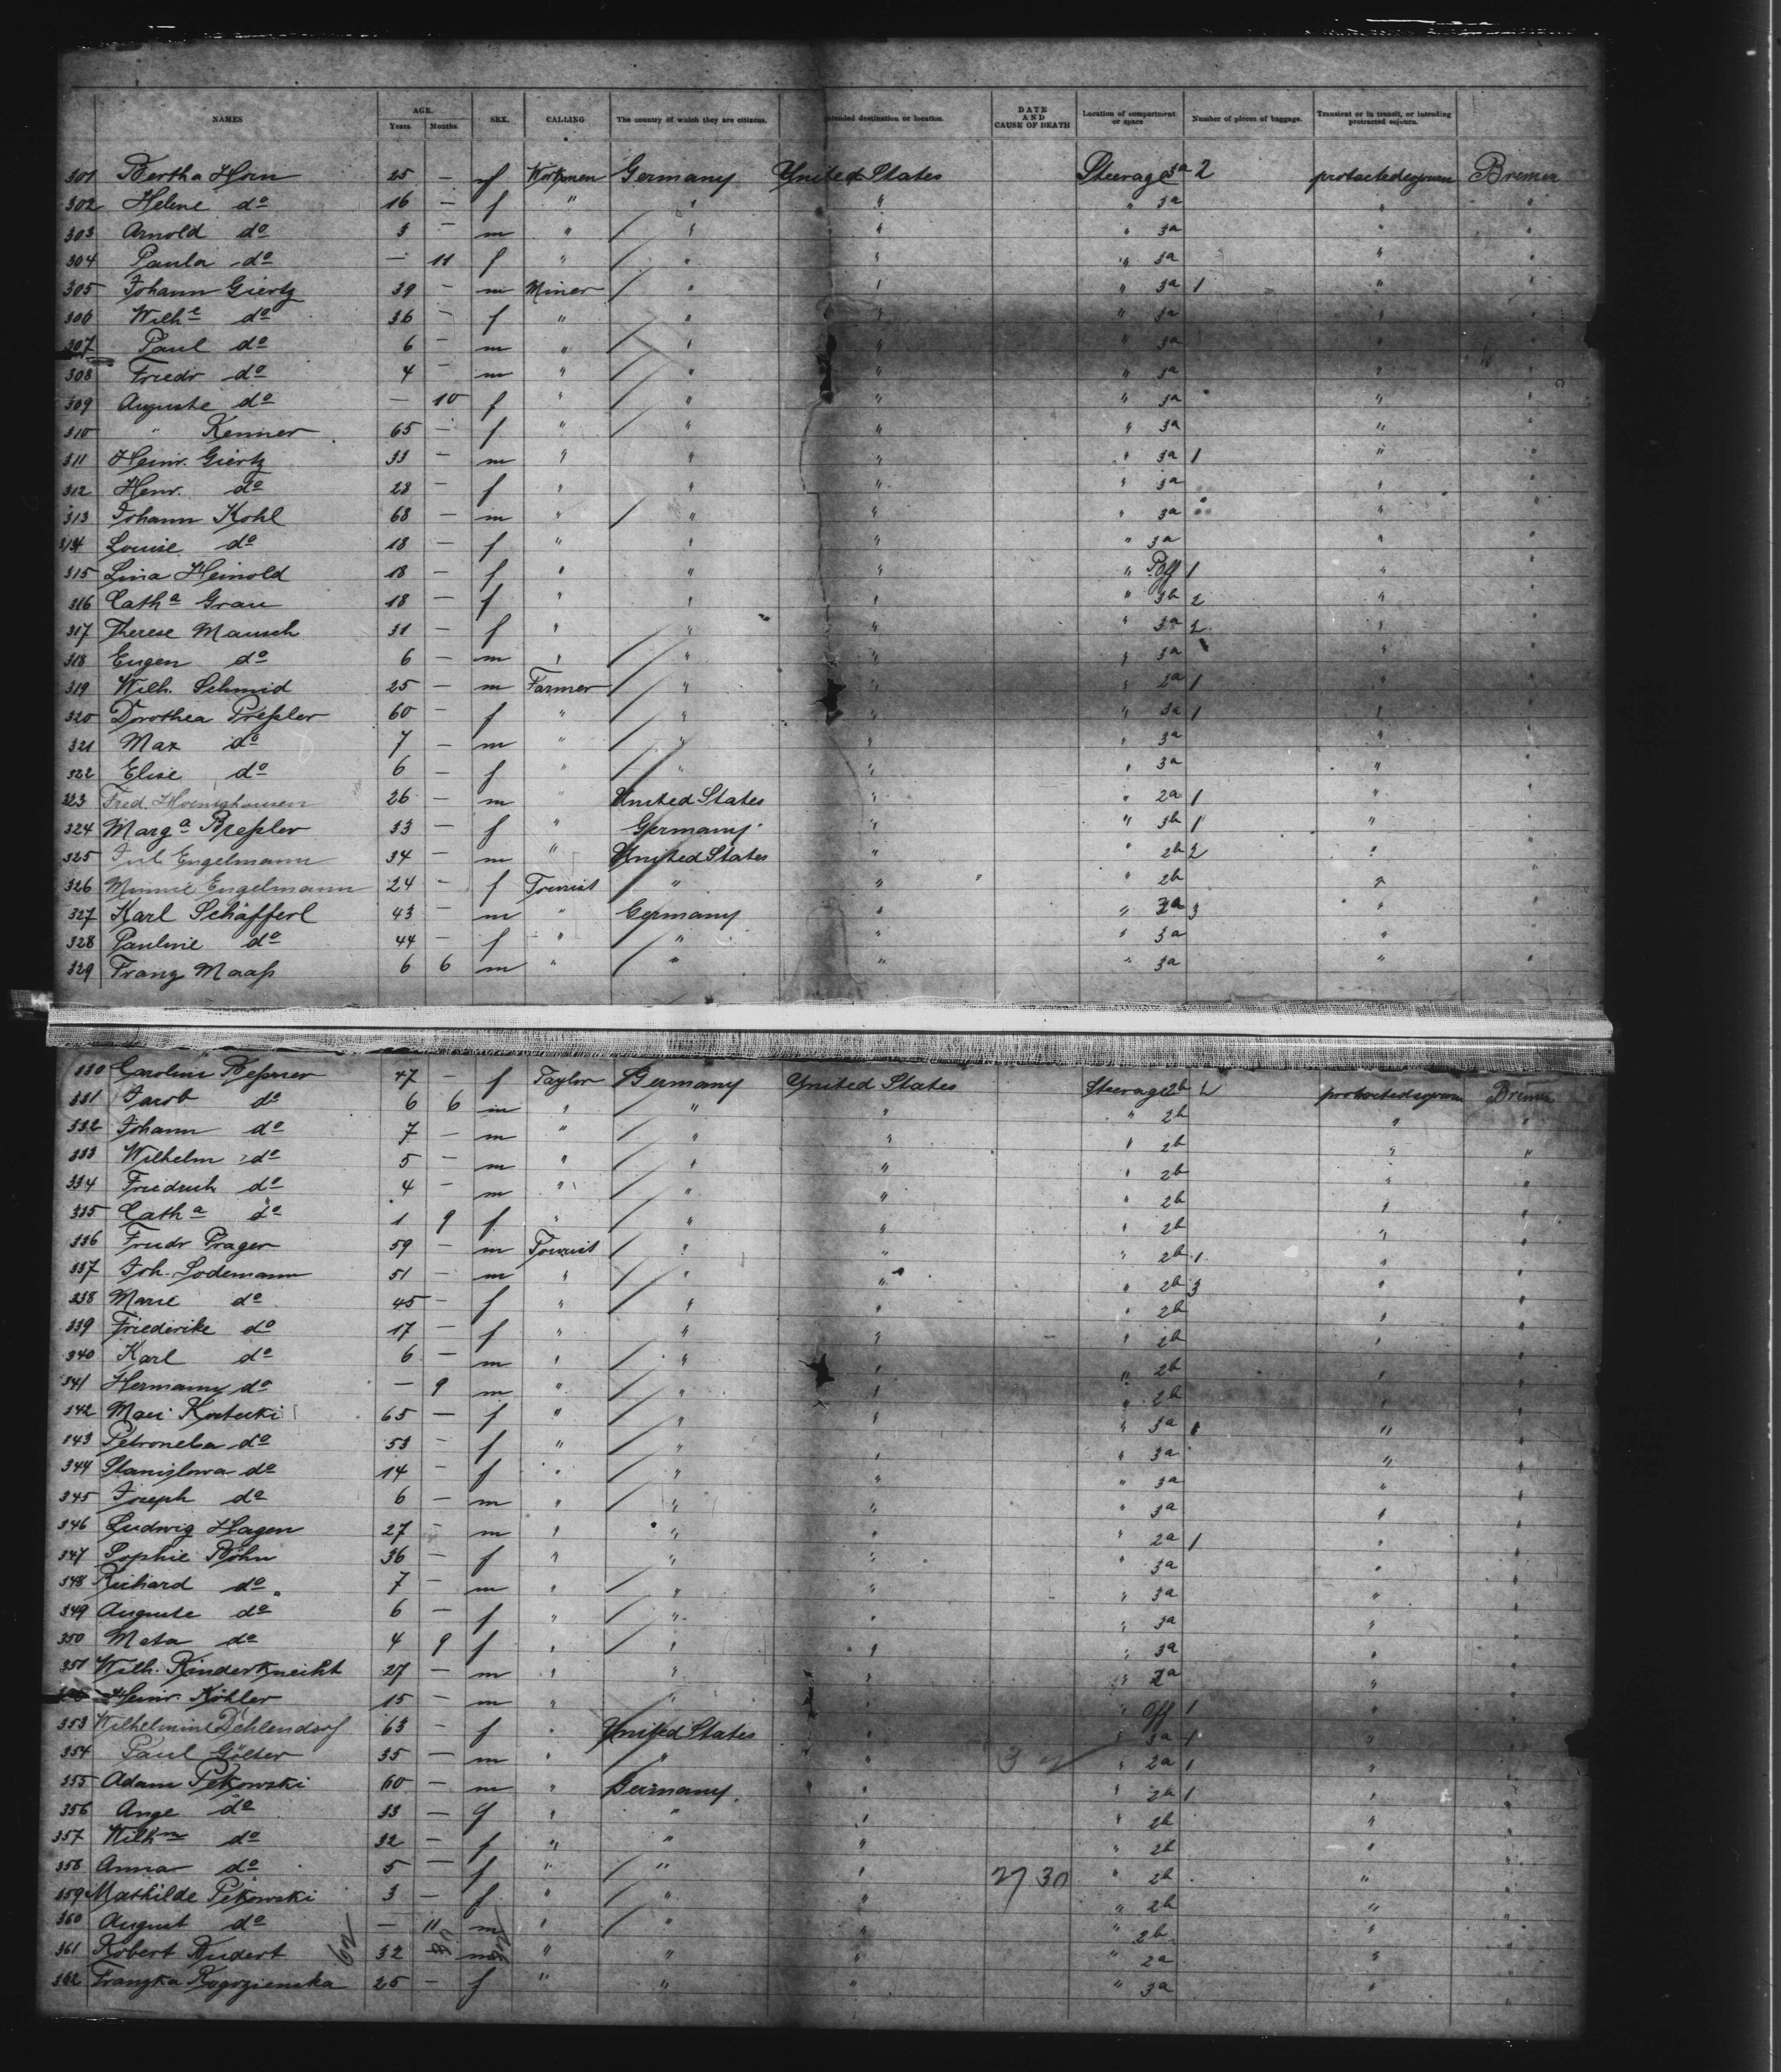 NAMES AGE. Years. Months. SEX. CALLING The country of which they are citizens. Intended destination or location. DATE AND CAUSE OF DEATH Location of compartment or space Number of pieces of baggage. Transient or in transit, or intending protracted sojourn.
301 Bertha Horn 25 — f Workmen Germany United States Steerage 3a 2 Bremen
302 Helene do 16 — f " " " " 3a " "
303 Arnold do 3 — m " " " " 3a " "
304 Paula do — 11 f " " " " 3a " "
305 Johann Giertz 39 — m Miner " " " 3a 1 " "
306 Wilhe do 36 — f " " " " 3a " "
307 Paul do 6 — m " " " " 3a " "
308 Friedr do 4 — m " " " " 3a " "
309 Auguste do — 10 f " " " " 3a " "
310 " Kenner 65 — f " " " " 3a " "
311 Heinr. Giertz 33 — m " " " " 3a 1 " "
312 Henr. do 28 — f " " " " 3a " "
313 Johann Kohl 68 — m " " " " 3a " "
314 Louise do 18 — f " " " " 3a " "
315 Lina Heinold 18 — f " " " " 1 " "
316 Catha Grau 18 — f " " " " 3b 2 " "
317 Therese Mausch 31 — f " " " " 3a 2 " "
318 Eugen do 6 — m " " " " 3a " "
319 Wilh. Schmid 25 — m Farmer " " " 2a 1 " "
320 Dorothea Preßler 60 — f " " " " 3a 1 " "
321 Max do 7 — m " " " " 3a " "
322 Elise do 6 — f " " " " 3a " "
323 Fred. 26 — m " United States " " 2a 1 " "
324 Marga Breßler 33 — f " Germany " " 3b 1 " "
325 Jul Engelmann 34 — m " United States " " 2b 2 " "
326 Minnie Engelmann 24 — f Tourist " " " 2b " "
327 Karl Schäfferl 43 — m " Germany " " 3 " "
328 Pauline do 44 — f " " " " 3a " "
329 Franz Maaß 6 6 m " " " " 3a " "
330 Caroline 47 — f Taylor Germany United States Steerage 2b 2 Bremen
331 Jacob do 6 6 m " " " " 2b " "
332 Johann do 7 — m " " " " 2b " "
333 Wilhelm do 5 — m " " " " 2b " "
334 Friedrich do 4 — m " " " " 2b " "
335 Catha do 1 9 f " " " " 2b " "
336 Friedr Prager 59 — m Tourist " " " 2b 1 " "
337 Joh. Lodemann 51 — m " " " " 2b 3 " "
338 Marie do 45 — f " " " " 2b " "
339 Friederike do 17 — f " " " " 2b " "
340 Karl do 6 — m " " " " 2b " "
341 Hermann do — 9 m " " " " 2b " "
342 65 — f " " " " 3a 1 " "
343 do 53 — f " " " " 3a " "
344 Stanislowa do 14 — f " " " " 3a " "
345 Joseph do 6 — m " " " " 3a " "
346 Ludwig Hagen 27 — m " " " " 2a 1 " "
347 Sophie Böhn 36 — f " " " " 3a " "
348 Richard do 7 — m " " " " 3a " "
349 Auguste do 6 — f " " " " 3a " "
350 Meta do 4 9 f " " " " 3a " "
351 Wilh. Rinderknecht 27 — m " " " " " "
Heinr. Köhler 15 — m " " " " 1 " "
353 Wilhelmine Dehlendorf 63 — f " United States " " 3a 1 " "
354 Paul Gölter 35 — m " " " " 2a 1 " "
355 Adam Petkowski 60 — m " Germany " " 2b 1 " "
356 Ange do 33 — " " " " 2b " "
357 Wilhm do 32 — f " " " " 2b " "
358 Anna do 5 — f " " " 27 30 " 2b " "
359 Mathilde 3 — f " " " " 2b " "
360 August do — 11 m " " " " 2b " "
361 Robert 32 " " " " 2a " "
362 Franzka 25 — f " " " " 3a " "